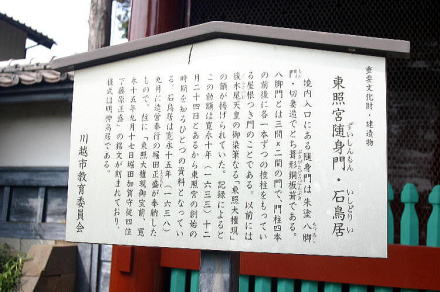 重要文化財・建造物
東照宮随身門・石鳥居
ずいしんもん いしどりい
境内入口にある随身門は朱塗八脚
門・切妻造でとち葺形銅板葺である。
八脚門とは三間×二間の門で、門柱四本
の前後に各一本ずつの控柱をもってい
る屋根つき門のことである。以前には
後水尾天皇の御染筆なる「東照大権現」
の額が掲げられていた。記録によると
この勅額は寛永十年(一六三三)十二
月二十四日とあるから東照宮の創始の
時期を知るひとつの資料となってい
る。石鳥居は寛永十五年(一六三八)
九月に造営奉行の堀田正盛が奉納した
もので、柱に「東照大権現御宝前、寛
永十五年九月十七日堀田加賀守従四位
下藤原正盛」の銘文が刻まれており、
様式は明神鳥居である。
川越市教育委員会